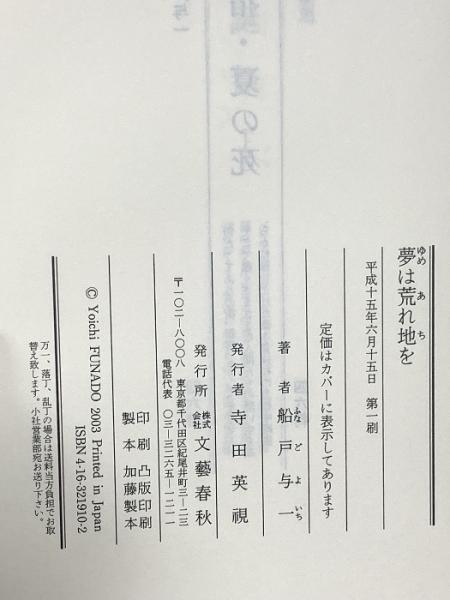 夢は荒れ地を
平成十五年六月十五日 第一刷
定価はカバーに表示してあります
著者 船戸与一
発行者 寺田英視
発行所 株式会社 文藝春秋
〒一〇二-八〇〇八 東京都千代田区紀尾井町三-二三
電話代表 〇三-三二六五-一二一一
印刷 凸版印刷
製本 加藤製本
© Yoichi FUNADO 2003 Printed in Japan
ISBN 4-16-321910-2
万一、落丁、乱丁の場合は送料当方負担でお取
替え致します。小社営業部宛お送り下さい。